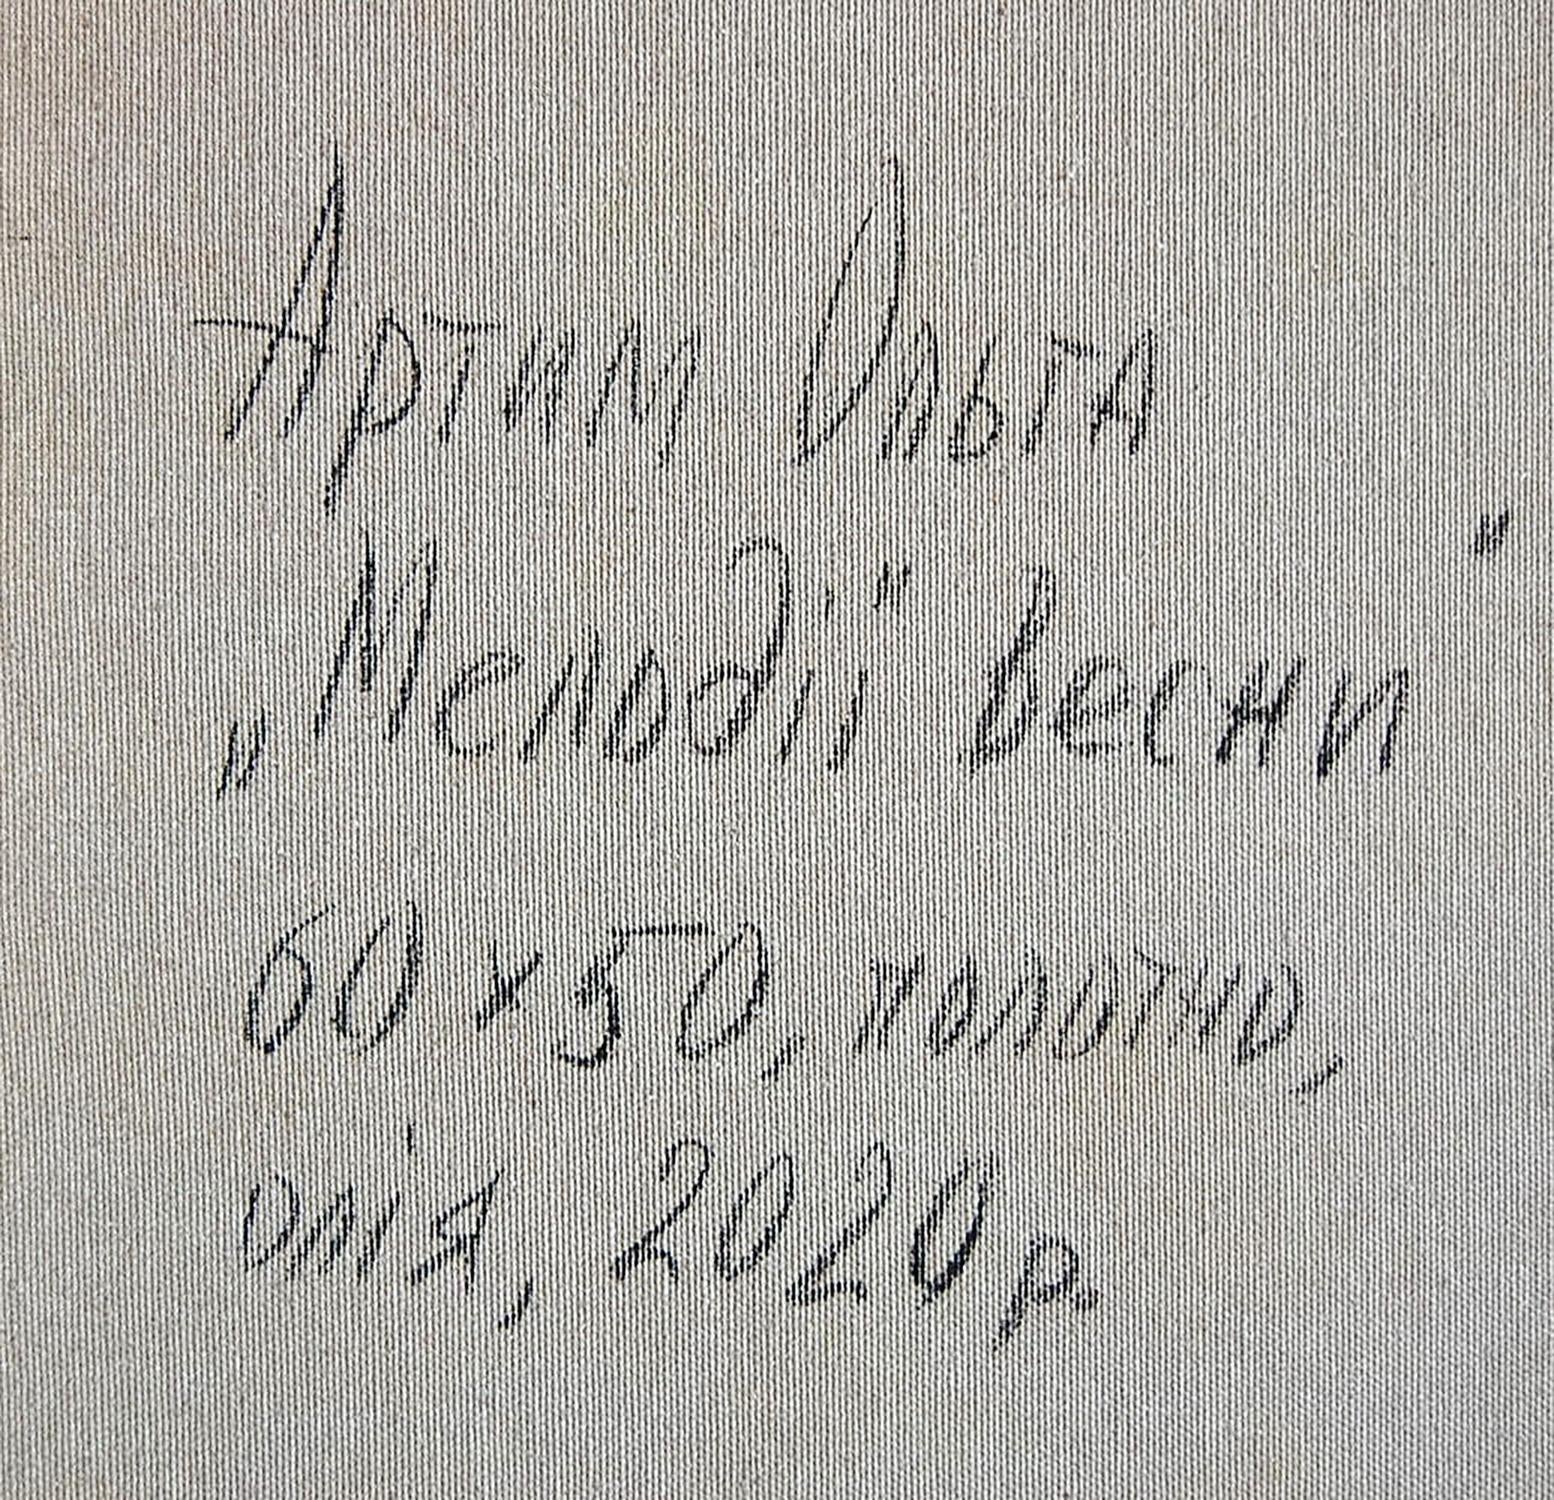 Артим Ольга
„Мелодії" весни"
60 х 50, полотно,
олія, 2020 р.